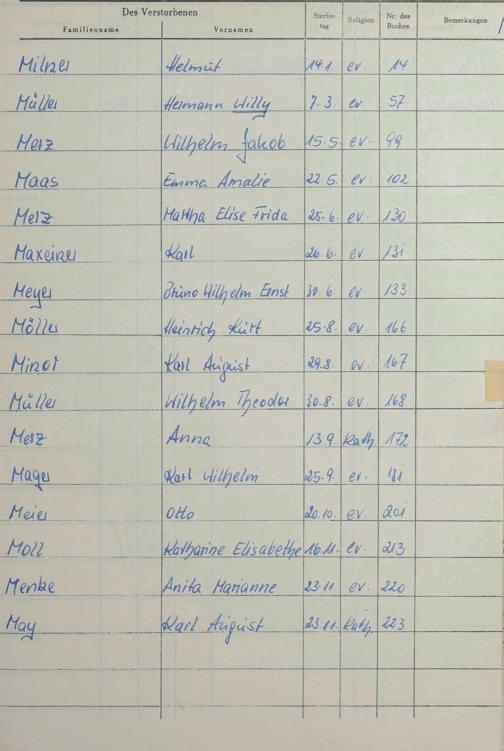 Des Verstorbenen Sterbe- tag Religion Nr. des Buches Bemerkungen
Familienname Vornamen
Milzer Helmut 14.1. ev. 14
Müller Hermann Willy 7.3. ev 57
Merz Wilhelm Jakob 15.5 ev. 99
Maas Emma Amalie 22.5. ev. 102
Merz Martha Elise Frida 25.6. ev. 130
Maxeiner Karl 26.6. ev. 131
Meyer Bruno Wilhelm Ernst 30.6 ev. 133
Möller Heinrich Kurt 25.8. ev. 166
Minor Karl August 29.8. ev. 167
Müller Wilhelm Theodor 30.8. ev. 168
Merz Anna 13.9. Kath. 172
Mager Karl Wilhelm 25.9. ev. 181
Meier Otto 20.10. ev. 201
Moll Katharine Elisabethe 16.11. ev. 213
Menke Anita Marianne 23.11 ev. 220
May Karl August 23.11. Kath. 223